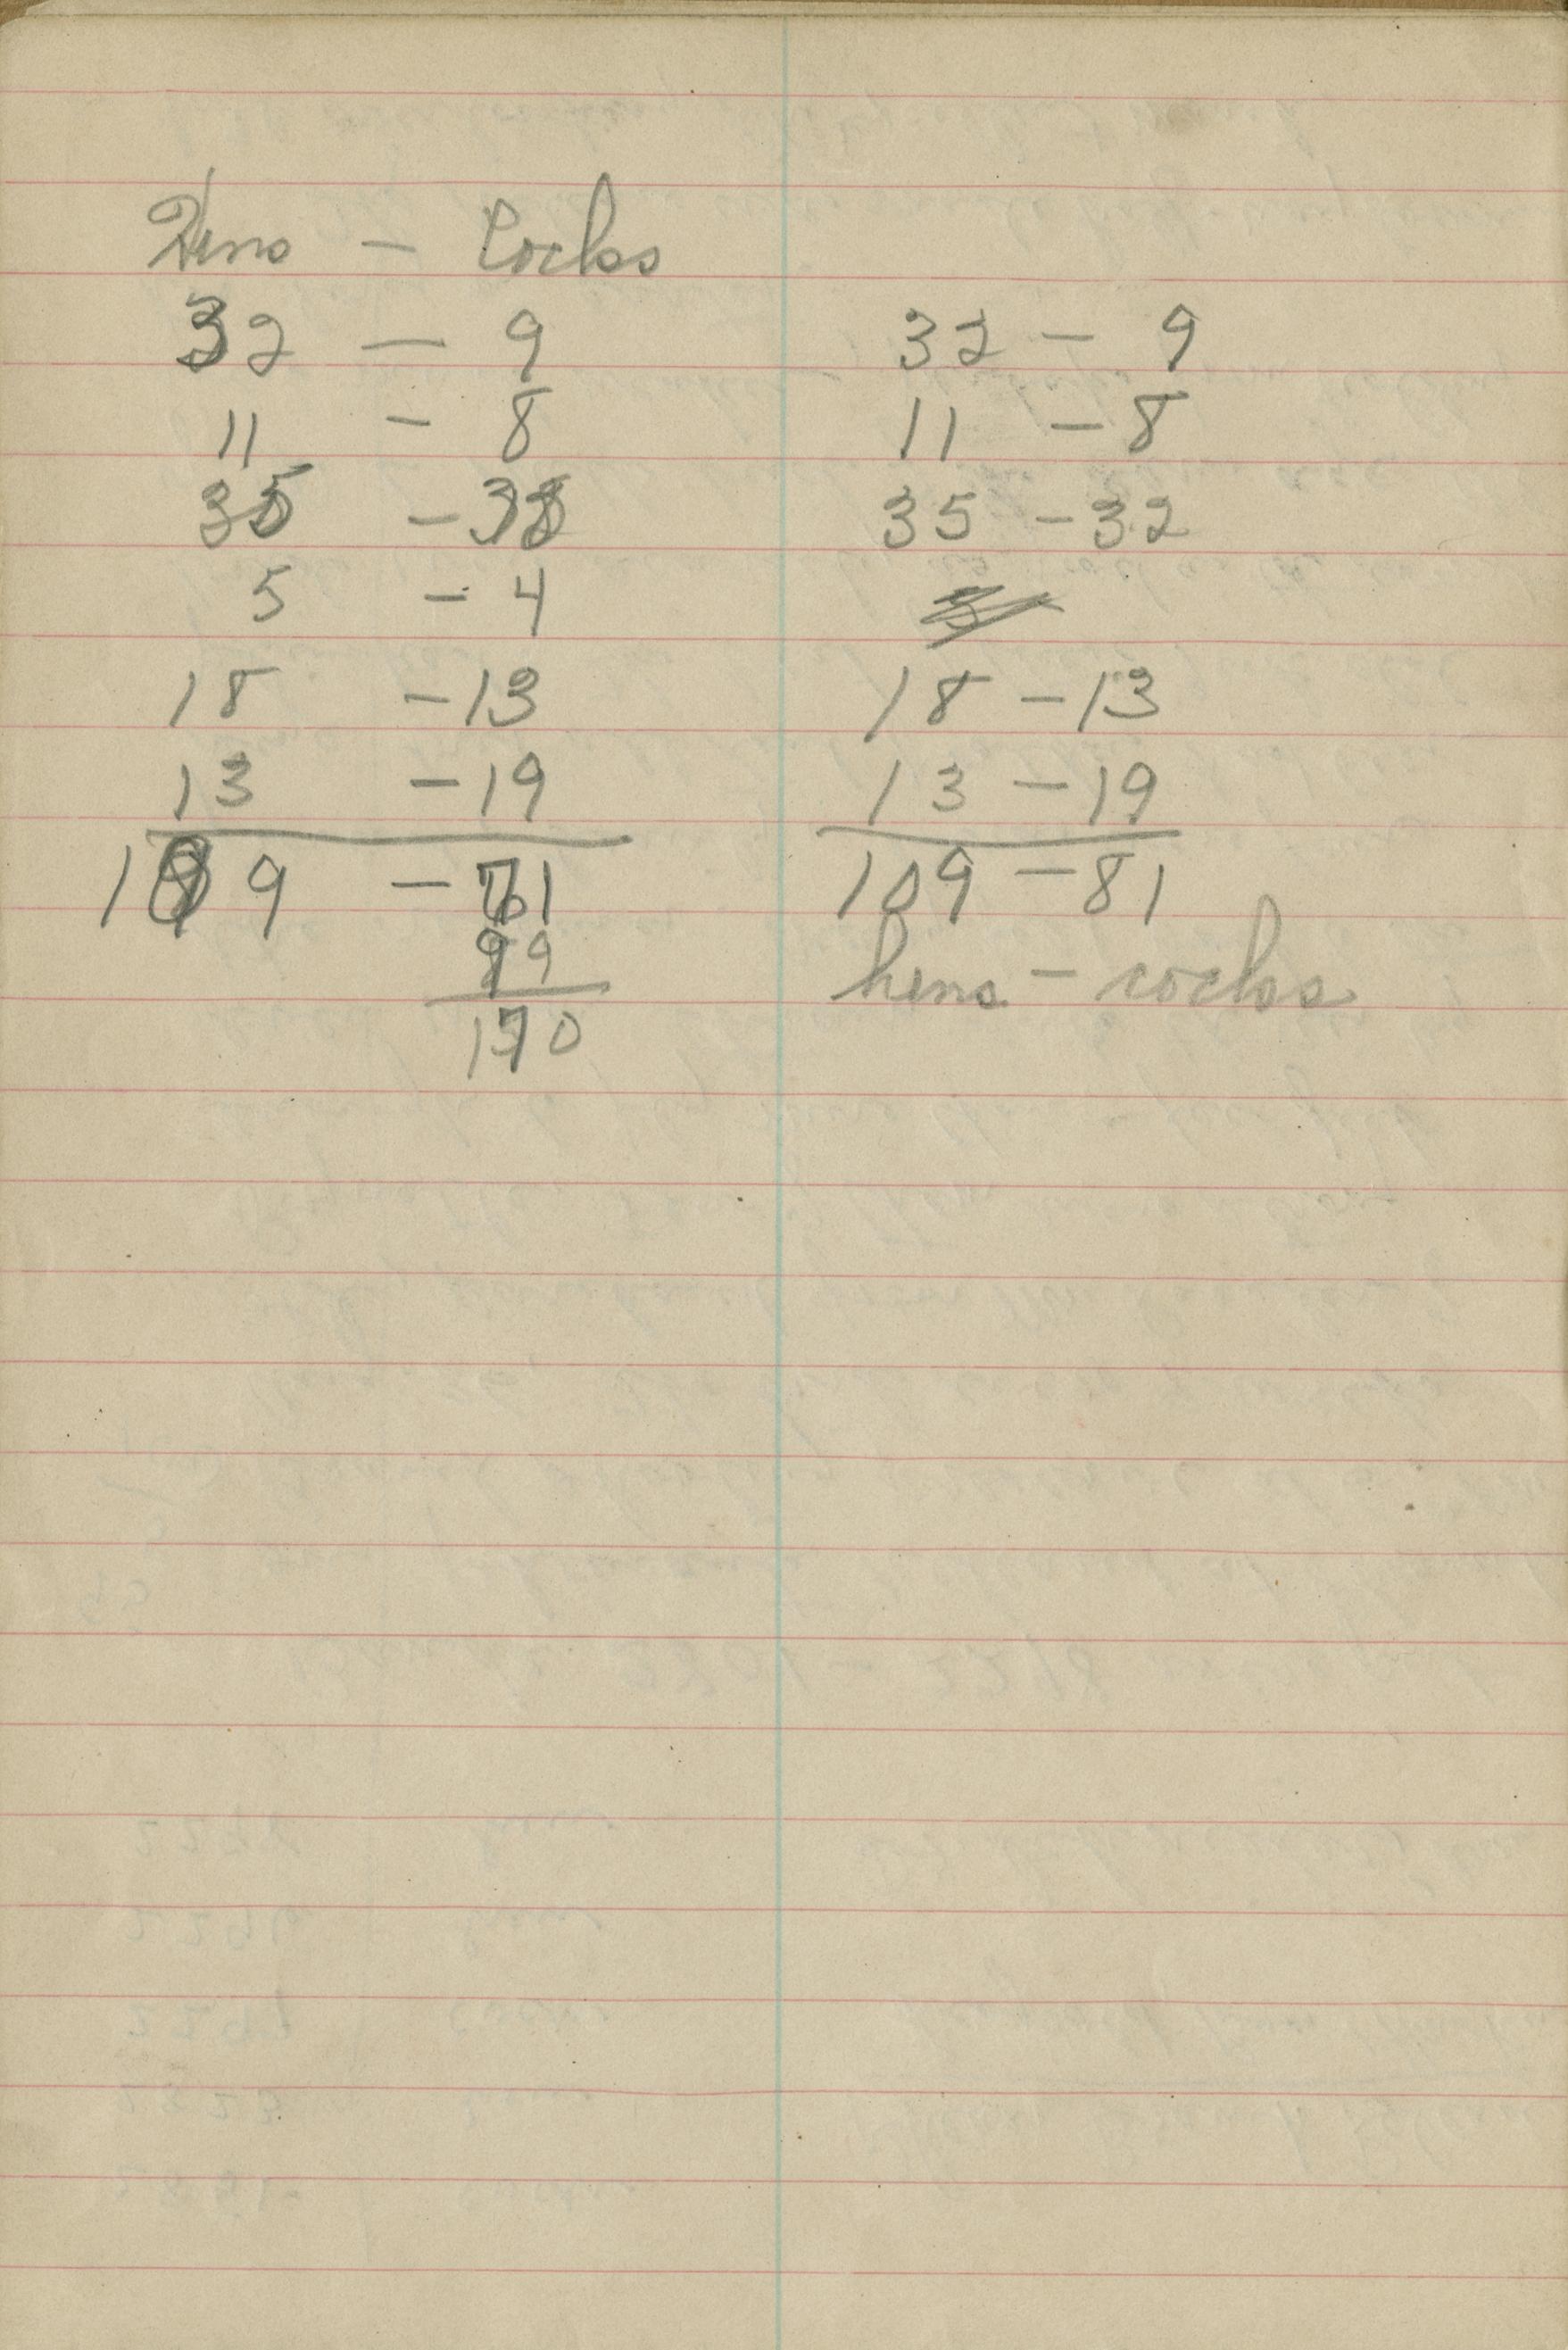 Hens - Cocks
32 - 9
11 - 8
35 - 33
5 - 4
18 - 13
13 - 19
109 - 71
99
170
32 - 9
11 - 8
35 - 32
18 - 13
13 - 19
109 - 81
hens - cocks